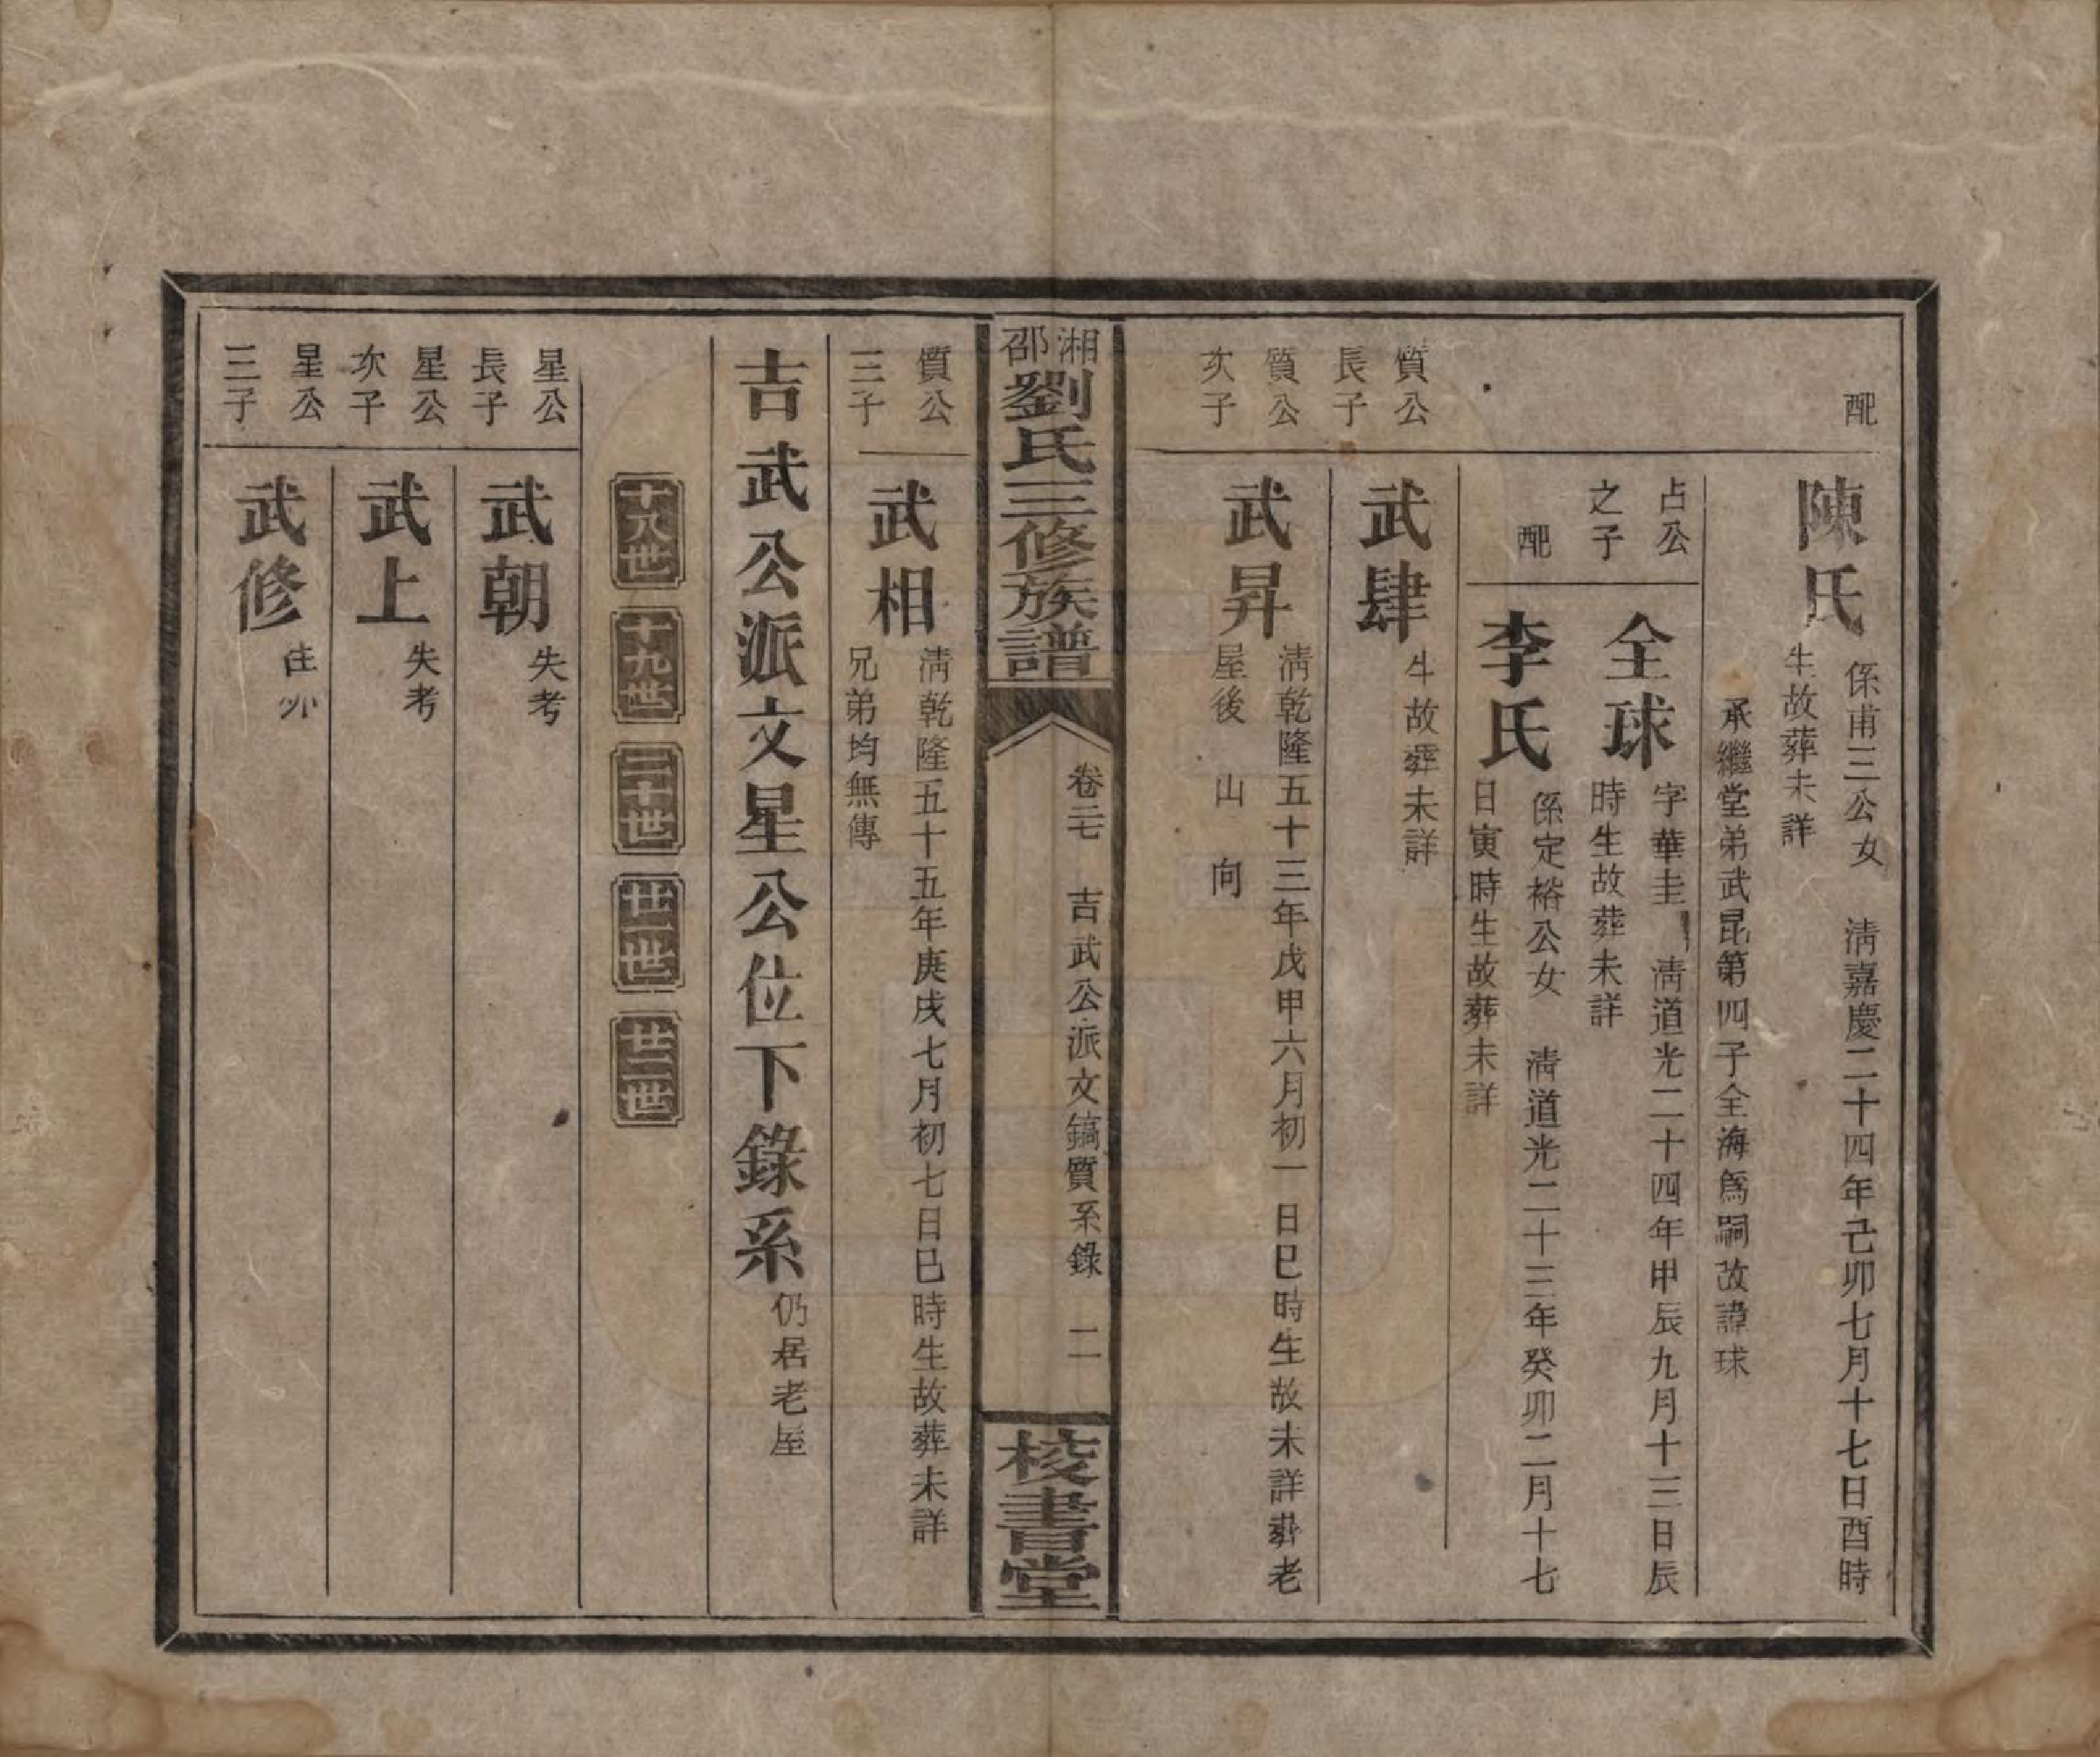 配
陳氏
係甫三公女　清嘉慶二十四年己卯七月十七日酉時
生故葬未詳
承繼堂弟武昆第四子全海爲嗣故諱球
占公
之子
全球
字華圭　清道光二十四年甲辰九月十三日辰
時生故葬未詳
配
李氏
係定裕公女　清道光二十三年癸卯二月十七
日寅時生故葬未詳
質公
長子
武肆
生故葬未詳
質公
次子
武昇
清乾隆五十三年戊申六月初一日巳時生故未詳葬老
屋後　山　向
湘邵劉氏三修族譜
卷二七　吉武公派文鎬質系錄　二
校書堂
質公
三子
武相
清乾隆五十五年庚戌七月初七日巳時生故葬未詳
兄弟均無傳
吉武公派文星公位下錄系
仍居老屋
十八世　十九世　二十世　廿一世　廿二世
星公
長子
武朝
失考
星公
次子
武上
失考
星公
三子
武修
往外